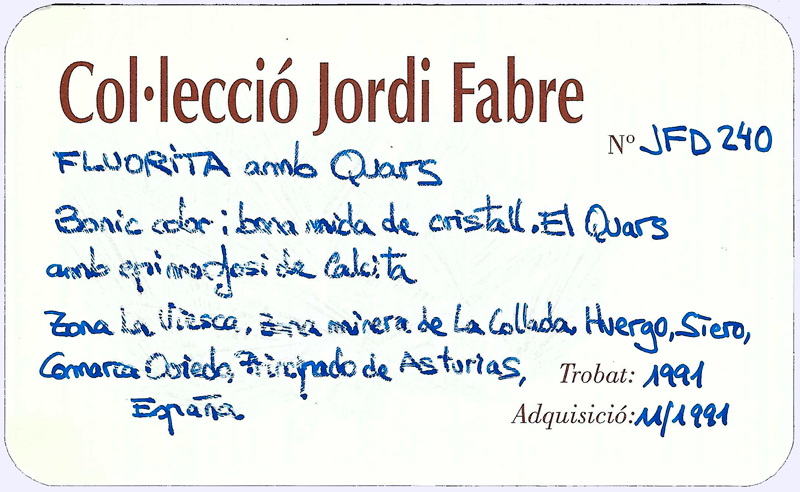 Col·lecció Jordi Fabre
Nº JFD 240
FLUORITA amb Quars
Bonic color i bona mida de cristall. El Quars
amb epimorfosi de Calcita
Zona La Viesca, zona minera de La Collada, Huergo, Siero,
Comarca Oviedo, Principado de Asturias,
España
Trobat: 1991
Adquisició: 11/1991